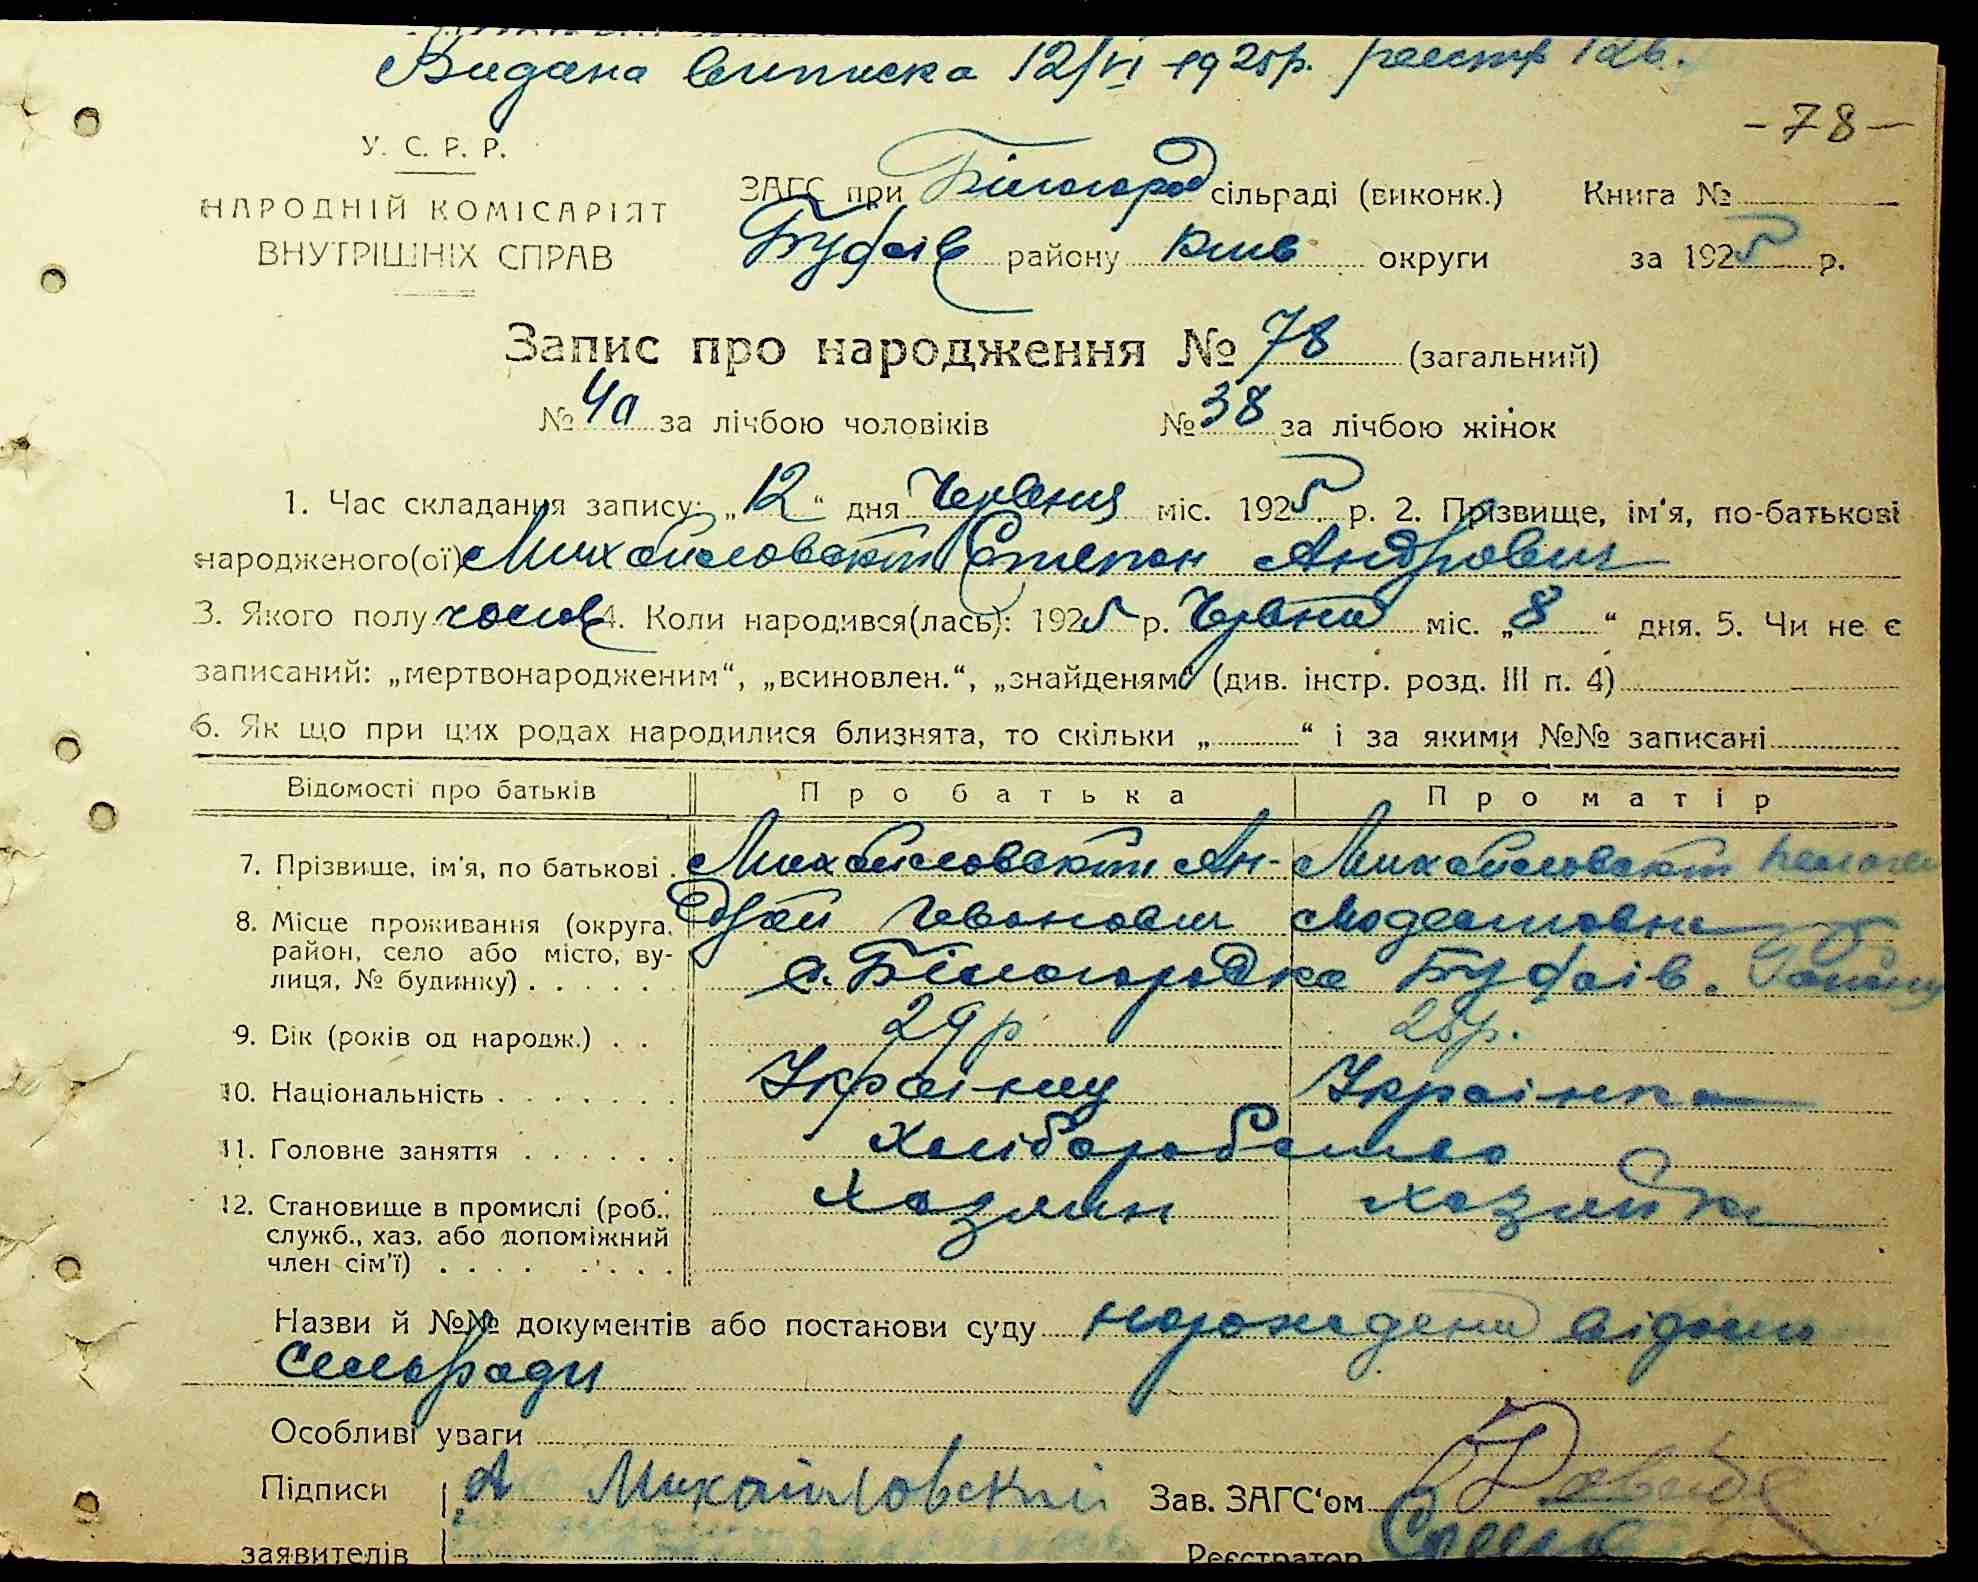 Видана виписка 12/VI -1925р. реестр
-78-
У. С. Р. Р.
НАРОДНІЙ КОМІСАРІЯТ
ВНУТРІШНІХ СПРАВ
ЗАГС при Білогород сільраді (виконк.) Книга №
Будаїв району Київ округи за 1925 р.
Запис про народження № 78 (загальний)
№ 40 за лічбою чоловіків № 38 за лічбою жінок
1. Час складання запису: „12“ дня Червня міс. 1925 р. 2. Прізвище, ім'я, по-батькові
народженого(ої) Михайловський Степан Андрович
3. Якого полу чолов 4. Коли народився(лась): 1925 р. Червня міс. „8“ дня. 5. Чи не є
записаний: „мертвонародженим“, „всиновлен.“, „знайденям“ (див. інстр. розд. III п. 4)
6. Як що при цих родах народилися близнята, то скільки „ “ і за якими №№ записані
Відомості про батьків Про батька Про матір
7. Прізвище, ім'я, по батькові . Михайловський Ан- Михайловськ
дрій Іванович Модестовна
8. Місце проживання (округа,
район, село або місто, ву-
лиця, № будинку) . . . . . . с. Білогородка Будаїв. району
9. Вік (років од народж.) . . 29 р 25р.
10. Національність . . . . . . . Українец Українка
11. Головне заняття . . . . . . Хліборобство
12. Становище в промислі (роб., Хазяин хазяйка
служб., хаз. або допоміжний
член сім'ї) . . . . . . . .
Назви й №№ документів або постанови суду
сельради
Особливі уваги
Підписи А Михайловский Зав. ЗАГС'ом
заявителів Реєстратор